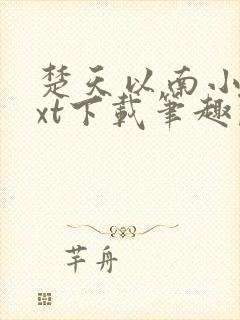 楚天以南小
xt下载笔趣
芊舟